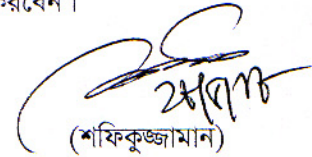 করবেন।
(শফিকুজ্জামান)